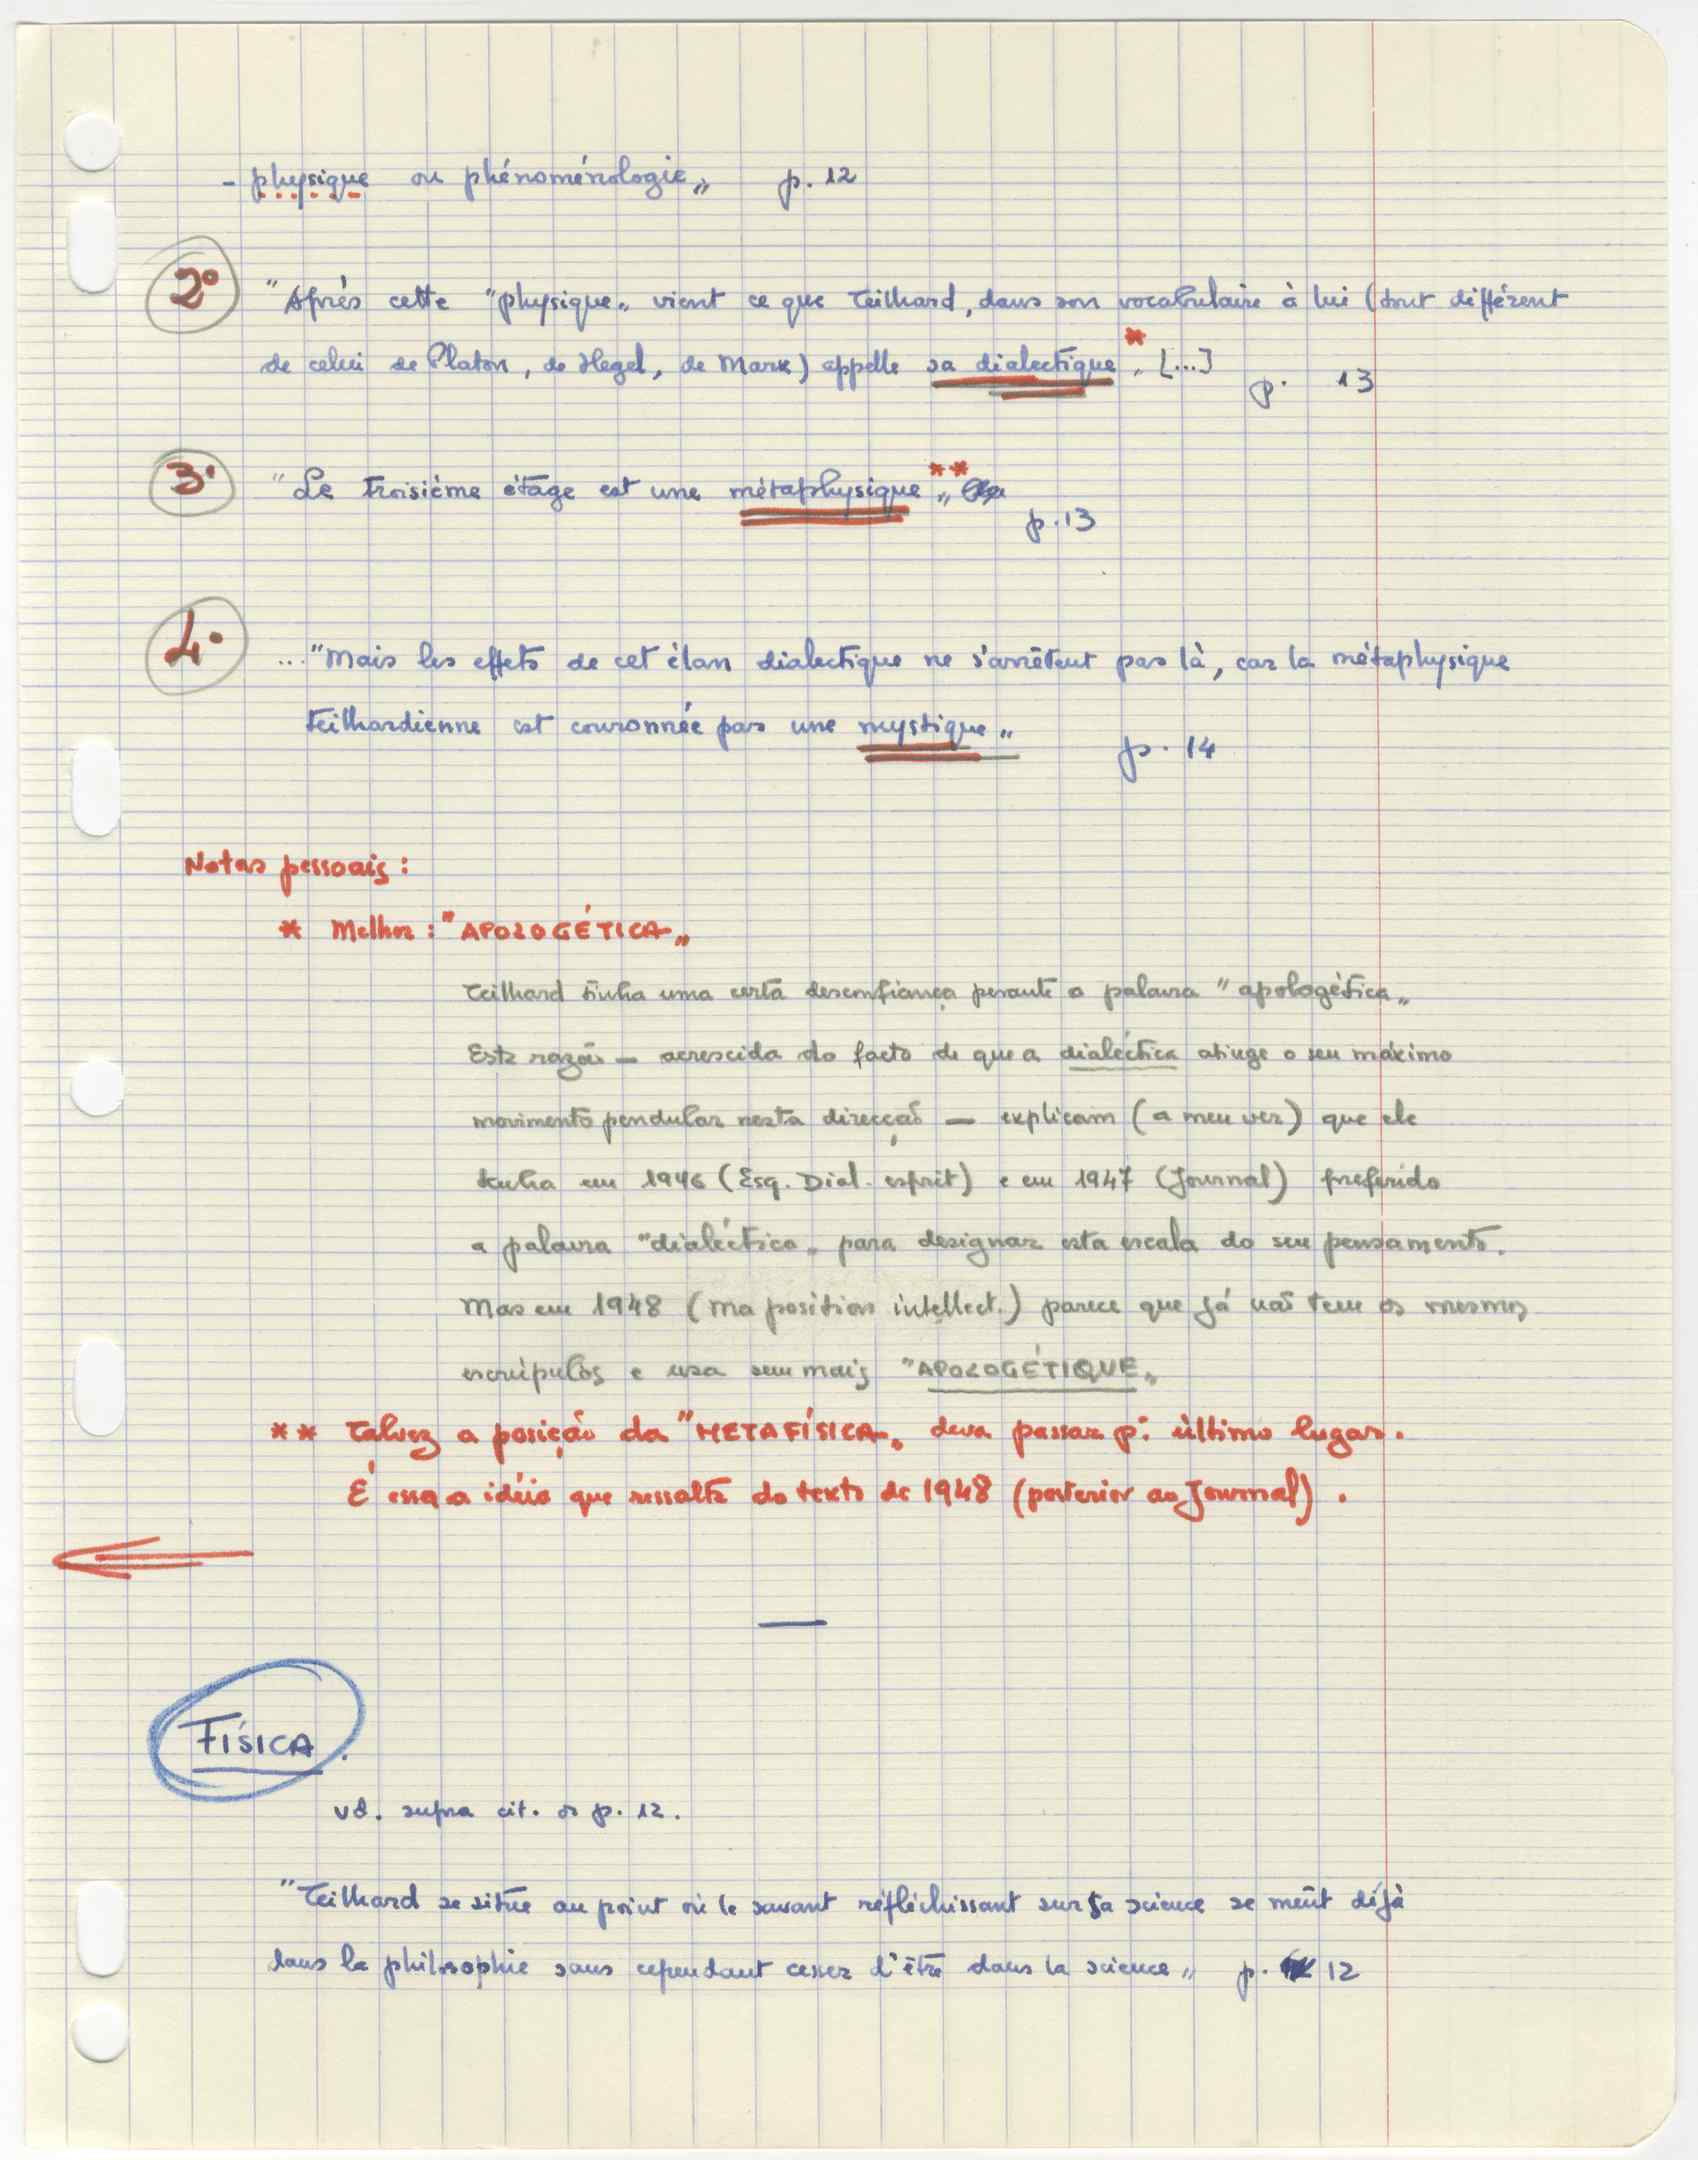 - physique ou phénoménologie„ p. 12
2º "Après cette "physique„ vient ce que Teilhard, dans son vocabulaire à lui (tout différent
de celui de Platon, de Hegel, de Marx) appelle sa dialectique * „ [...] p. 13
3º "Le troisième étage est une métaphysique ** „ p. 13
4º ... "Mais les effets de cet élan dialectique ne s'arrêtent pas là, car la métaphysique
teilhardienne est couronnée par une mystique„ p. 14
Notas pessoais :
* Melhor : "APOLOGÉTICA„
Teilhard tinha uma certa desconfiança perante a palavra "apologética„
Esta razão — acrescida do facto de que a dialéctica atinge o seu máximo
movimento pendular nesta direcção — explicam (a meu ver) que ele
tenha em 1946 (Esq. Dial. esprit) e em 1947 (Journal) preferido
a palavra "dialéctica„ para designar esta escala do seu pensamento.
Mas em 1948 (Ma position intellect.) parece que já não tem os mesmos
escrúpulos e usa sem mais "APOLOGÉTIQUE„
** Talvez a posição da "METAFÍSICA„ deva passar p: último lugar.
É essa a idéia que ressalta do texto de 1948 (posterior ao Journal).
FÍSICA.
vd. supra cit. p. 12.
"Teilhard se situe au point où le savant réfléchissant sur sa science se meût déjà
dans la philosophie sans cependant cesser d'être dans la science„ p. 12